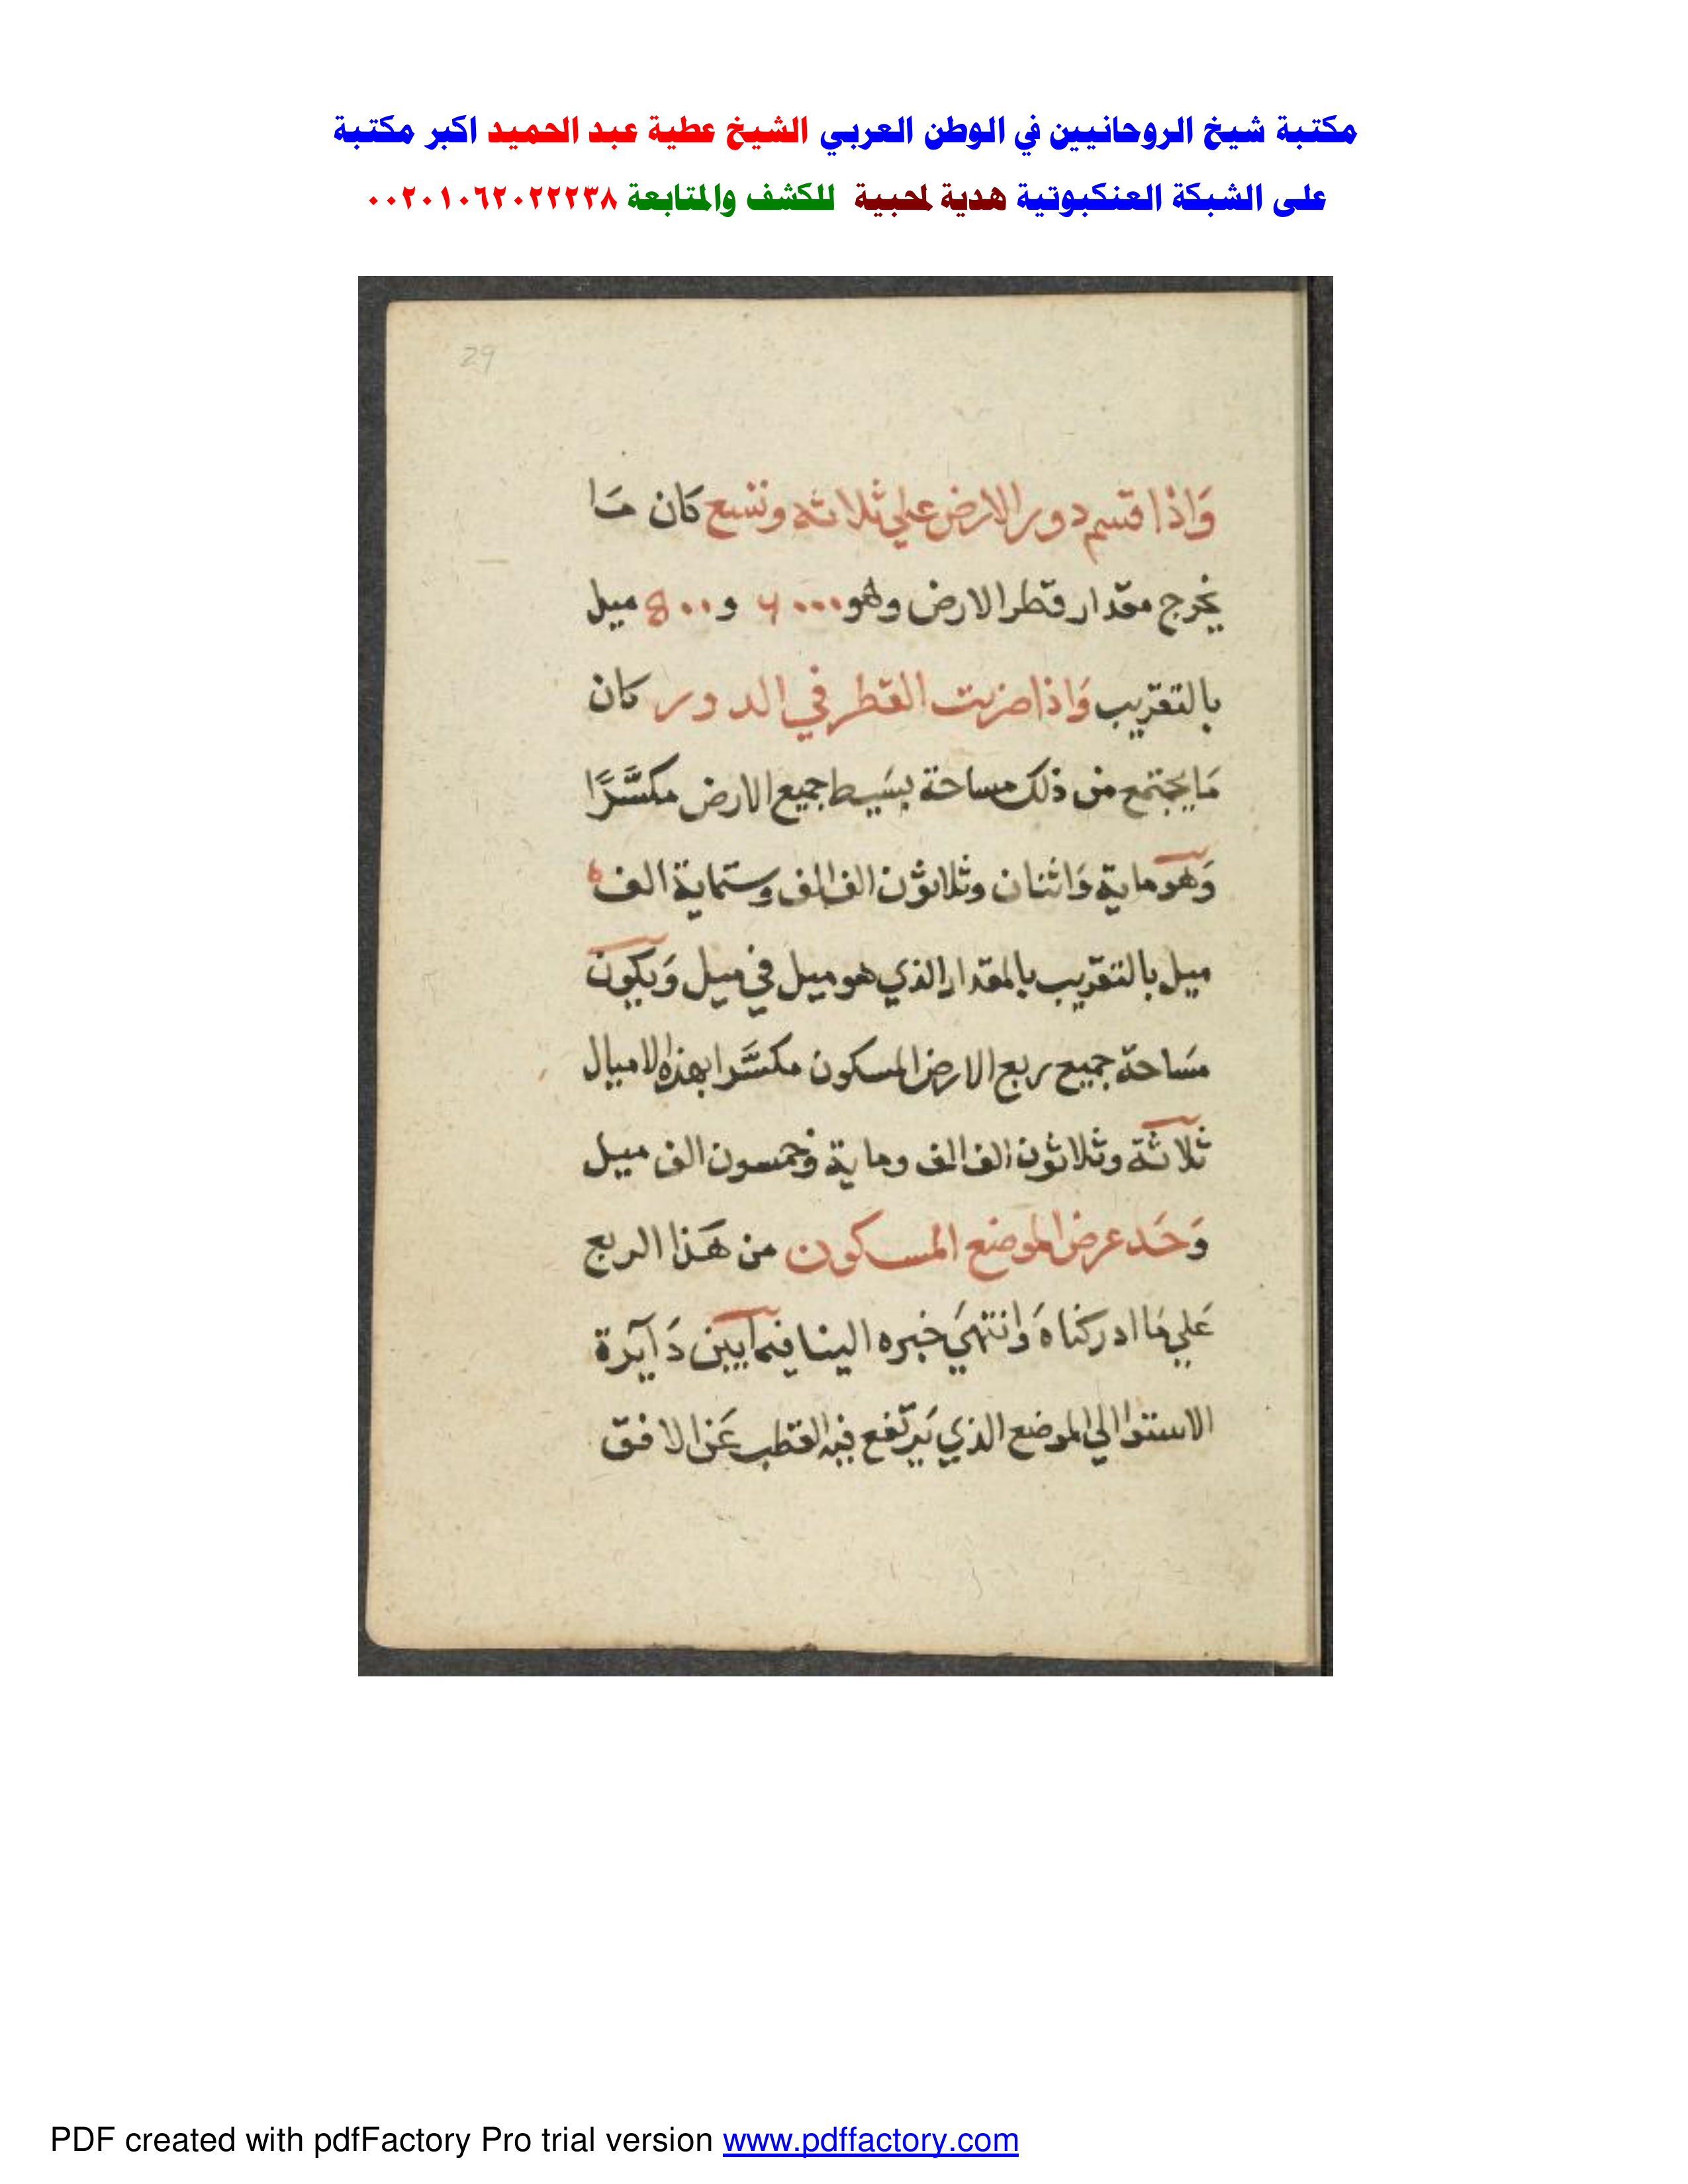 مكتبة شيخ الروحانيين في الوطن العربي الشيخ عطية عبد الحميد اكبر مكتبة
على الشبكة العنكبوتية هدية لمحبية للكشف والمتابعة ٠٠٢٠١٠٦٢٠٢٢٢٣٨
29
وَاذا قسم دور الارض علي ثلاثه وتسع كان مَا
يخرج مقدار قطر الارض وهو ٦٠٠٠ و ٥٠٠ ميل
بالتقريب وَاذا ضربت القطر في الدور كان
مَا يجتمع من ذلك مساحة بسَيط جميع الارض مكسَّرًا
وَهو ماية وَاثنان وثلاثون الف الف وستماية الف
ميل بالتقريب بالمقدار الذي هو ميل في ميل وَيكون
مسَاحة جميع ربع الارض المسكون مكسَّرا بهذه الاميال
ثلاثة وثلاثون الف الف وماية وخمسون الف ميل
وَحَد عرض الموضع المسكون من هَذا الربع
عَلي مَا ادركناه وَانتهَي خبره الينا فيما بين دَايرة
الاستوا الي الموضع الذي يَرتفع فيه القطب عَن الافق
PDF created with pdfFactory Pro trial version www.pdffactory.com